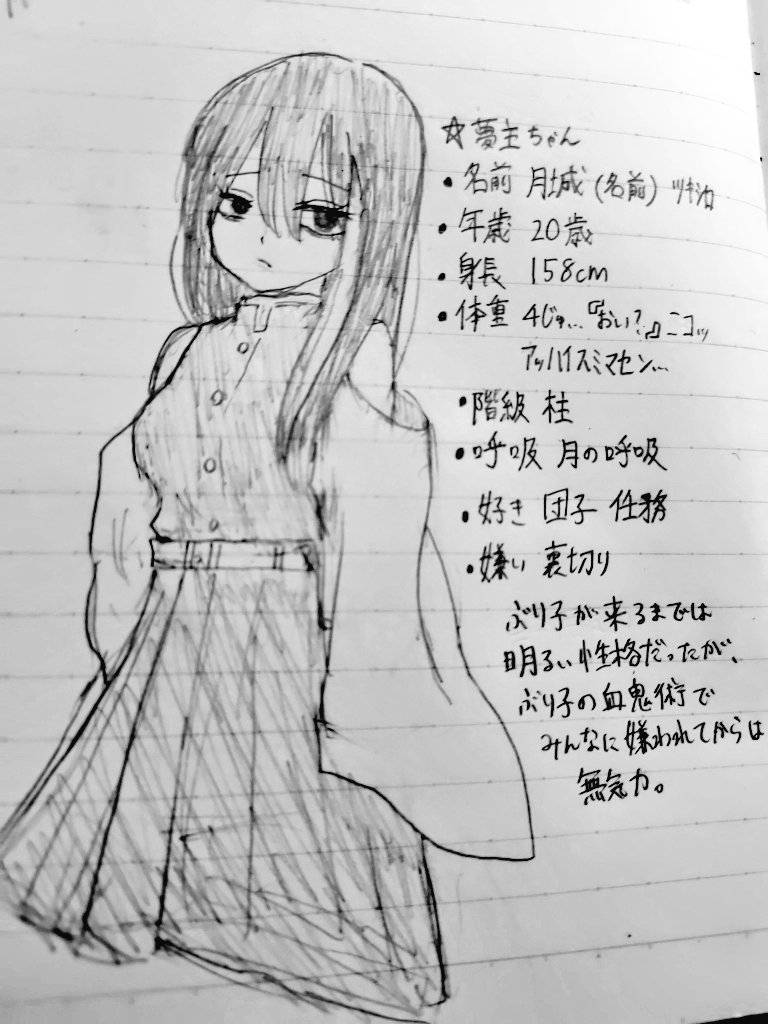 ☆夢主ちゃん
・名前 月城(名前) ツキシロ
・年歳 20歳
・身長 158cm
・体重 4じゅ…『おい?』ニコッ
アッハイスミマセン…
・階級 柱
・呼吸 月の呼吸
・好き 団子 任務
・嫌い 裏切り
ぶり子が来るまでは
明るい性格だったが、
ぶり子の血鬼術で
みんなに嫌われてからは
無気力。